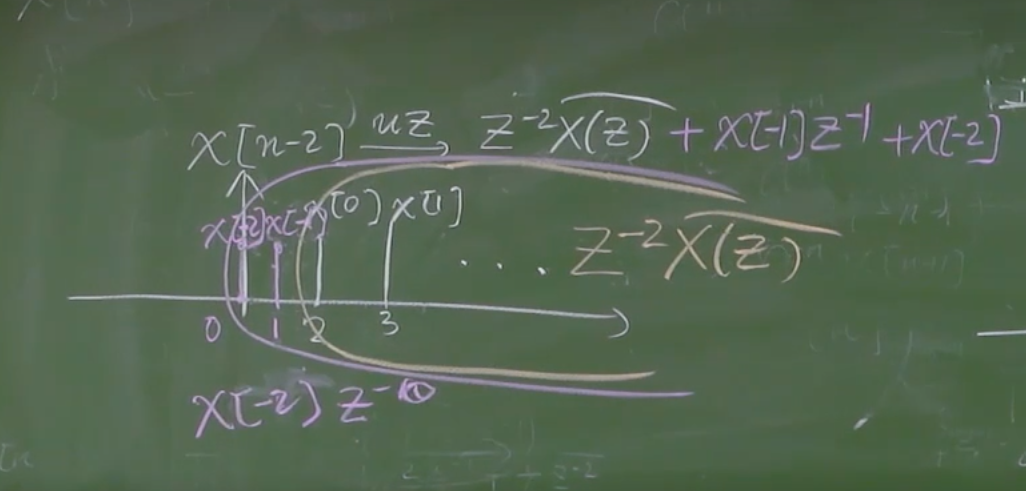 x[n-2] uZ→ z⁻²X(z) + x[-1]z⁻¹ + x[-2]
x[-2] x[-1] x[0] x[1]
.... z⁻²X(z)
0 1 2 3
x[-2] z⁻⁰